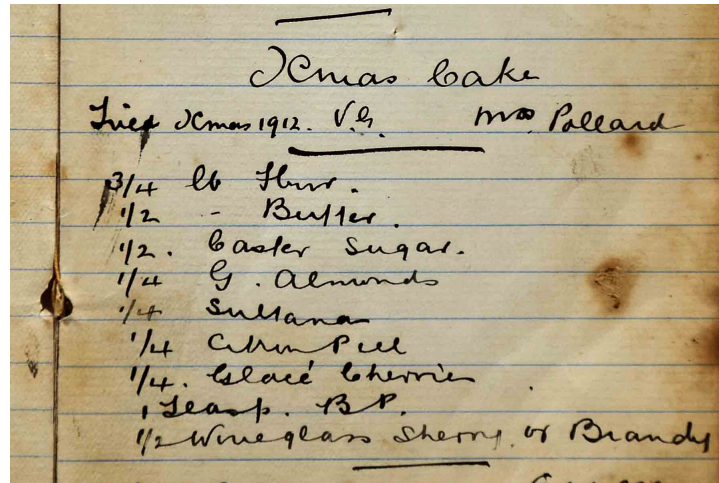 Xmas Cake
Tried Xmas 1912. V.G. Mrs Pollard
3/4 lb Flour.
1/2 - Butter.
1/2. Caster Sugar.
1/4 G. Almonds
1/4 Sultana
1/4 Citron Peel
1/4. Glacé Cherries
1 Teasp. B.P.
1/2 Wineglass Sherry or Brandy